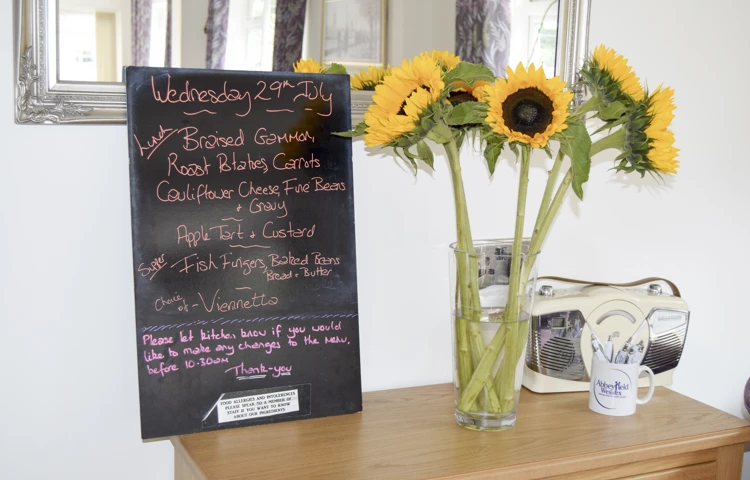 Wednesday 29th July
Lunch Braised Gammon
Roast Potatoes, Carrots
Cauliflower Cheese, Fine Beans
+ Gravy
Apple Tart + Custard
Supper Fish Fingers, Baked Beans
Bread + Butter
Choice of - Viennetta
Please let kitchen know if you would
like to make any changes to the menu.
before 10.30am
Thank-you
FOOD ALLERGIES AND INTOLERENCES
PLEASE SPEAK TO A MEMBER OF
STAFF IF YOU WANT TO KNOW
ABOUT OUR INGREDIENTS
Abbeyfield
Wessex